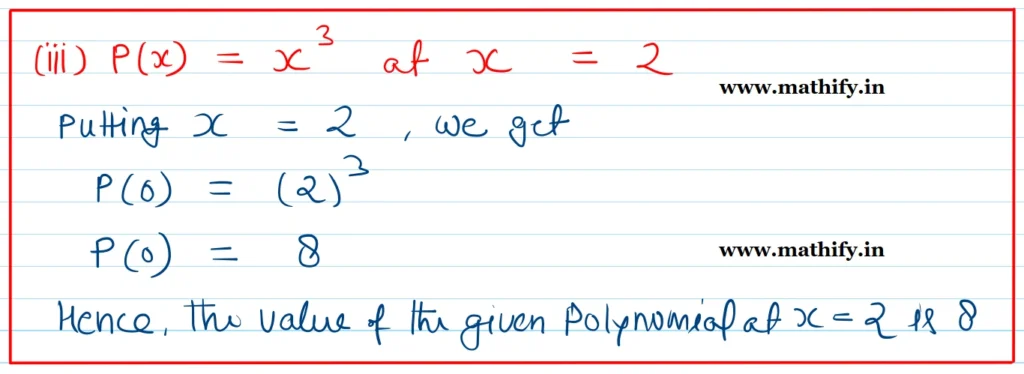 (iii) P(x) = x³ at x = 2
www.mathify.in
Putting x = 2 , we get
P(0) = (2)³
P(0) = 8
www.mathify.in
Hence, the value of the given Polynomial at x = 2 is 8